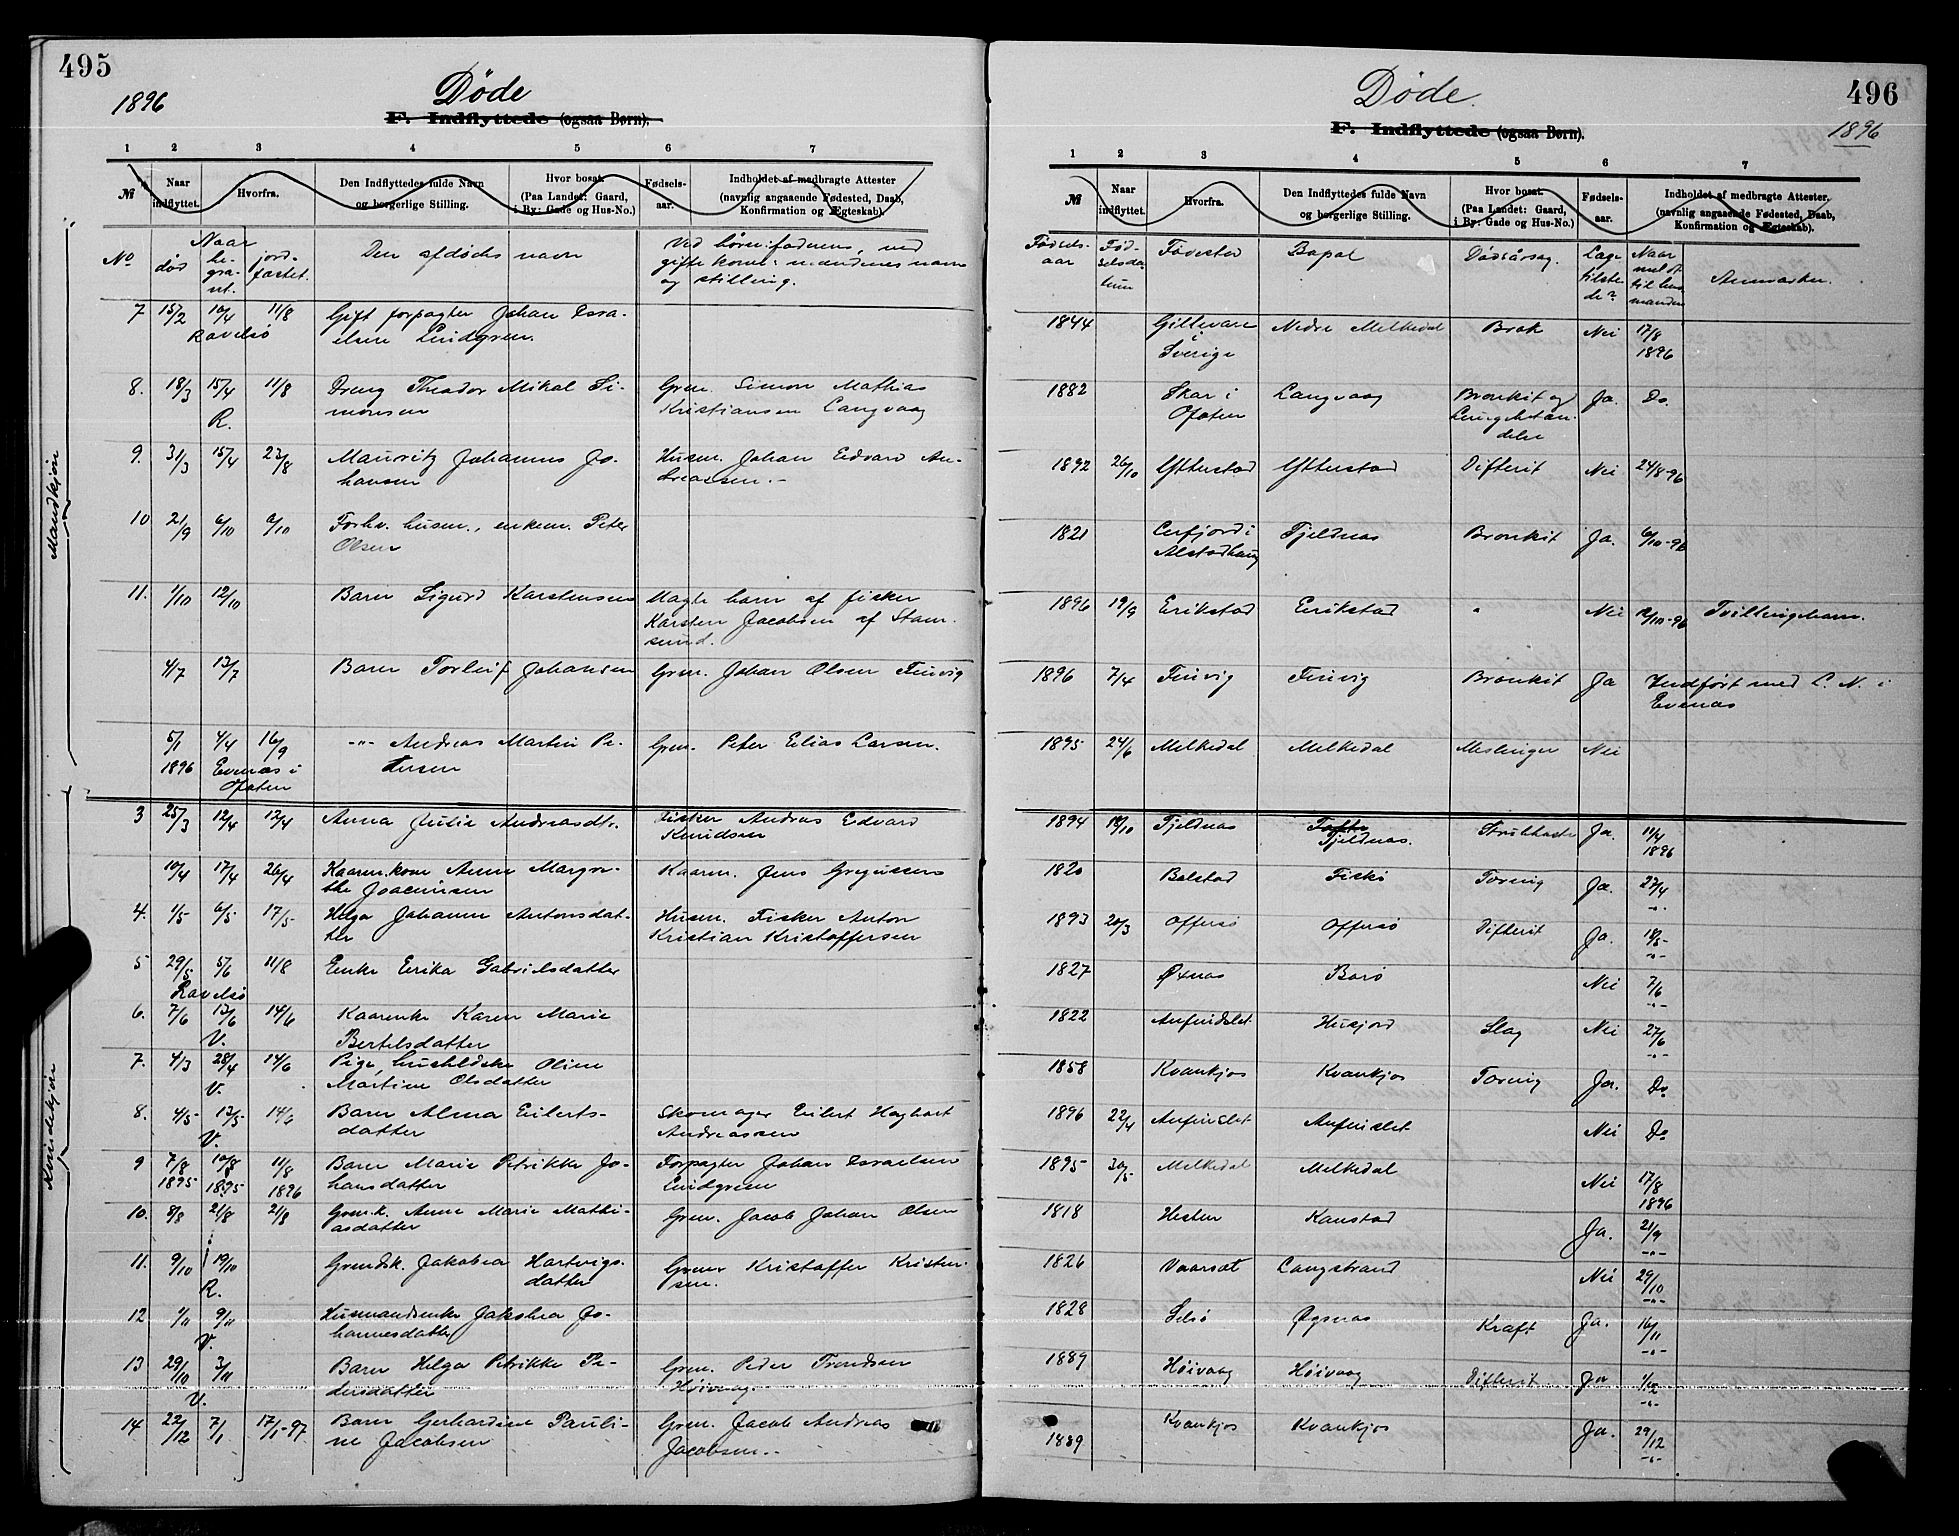 495
1896
Døde
F. Indflyttede (ogsaa Børn).
1 2 3 4 5 6 7
№
Naar indflyttet.
Hvorfra.
Den Indflyttedes fulde Navn og borgerlige Stilling.
Hvor bosat. (Paa Landet: Gaard, i By: Gade og Hus-No.)
Fødsels-aar.
Indholdet af medbragte Attester (navnlig angaaende Fødested, Daab, Konfirmation og Ægteskab).
No
Naar
død
be-gra-vet.
jord-fæstet.
Den afdødes navn
Ved børn: faderens, ved
gifte koner: mandens navn
og stilling.
Mandkjøn
7 15/2 10/4 11/8 Gift forpagter Johan Esra-
elsen Lindgren.
8. 18/3 15/4 11/8 Dreng Theodor Mikal Si- Grm. Simon Mathias
R. monsen Kristiansen Langvaag
9. 31/3 15/4 23/8 Mauritz Johannes Jo- Husm. Johan Edvard An-
hansen dreassen.-
10 21/9 6/10 6/10 Forhv. husm., enkem. Peter
Olsen
11. 1/10 12/10 Barn Sigurd Karstensen Uægte barn af fisker
Karsten Jacobsen af Stam-
sund.
4/7 13/7 Barn Torleif Johansen Grm. Johan Olsen Finvig
5/1 4/4 16/9 -"- Andreas Martin Pe- Grm. Peter Elias Larsen.
1896 Evenæs i Ofoten tersen
Kvindekjøn
3 25/3 12/4 12/4 Anna Julie Andreasdtr. Fisker Andreas Edvard
Knudsen
10/4 17/4 26/4 Kaarm.kone Anne Margre- Kaarm. Jens Gregussens
the Joacimsen
4. 1/5 6/5 17/5 Helga Johanne Antonsdat- Husm. Fisker Anton
ter Kristian Kristoffersen
5 29/5 5/6 11/8 Enke Erika Gabrielsdatter
6. 7/6 13/6 14/6 Kaarenke Karen Marie
V. Bertelsdatter
7. 4/3 28/4 14/6 Pige, Oline
V. Martine Olsdatter
8. 4/5 13/5 14/6 Barn Alma Eilerts- Skomager Eilert Hagbart
V. datter Andreassen
9 7/8 10/8 11/8 Barn Marie Petrikke Jo- Forpagter Johan Esraelsen
1895 1895 1896 hansdatter Lindgren
10. 8/8 21/8 21/8 Grm.k. Anne Marie Mathi- Grm. Jacob Johan Olsen
asdatter
11. 9/10 19/10 Grmdsk. Jakobea Hartvigs- Grm. Kristoffer Kristen-
R. datter sen.
12 1/11 9/11 Husmandsenke Jakobea Jo-
V. hannesdatter
13 29/10 3/11 Barn Helga Petrikke Pe- Grm. Peder Trondsen
V. dersdatter Høivaag.
14 22/12 7/1 17/1-97 Barn Gerhardine Pauli- Grm. Jacob Andreas
ne Jacobsen Jacobsen.-
Døde.
496
F. Indflyttede (ogsaa Børn).
1896
1 2 3 4 5 6 7
№
Naar indflyttet.
Hvorfra.
Den Indflyttedes fulde Navn og borgerlige Stilling.
Hvor bosat. (Paa Landet: Gaard, i By: Gade og Hus-No.)
Fødsels-aar.
Indholdet af medbragte Attester, (navnlig angaaende Fødested, Daab, Konfirmation og Ægteskab).
Fødsels-aar
Fød-selsda-tum
Fødested
Bopæl
Dødsårsag.
Læge tilste-de?
Naar meldt til lens-manden
Anmærkn.
1844 Gillevare i Sverige Nedre Melkedal Brok Nei 17/8 1896
1882 Skar i Ofoten Langvaag Bronkit og Lungebetæn-delse Ja. Do.
1892 26/10 Ytterstad Ytterstad Difterit Nei 24/8-96
1821 Leirfjord i Alstadhaug Tjeldnæs Bronkit Ja. 6/10-96
1896 19/9 Erikstad Erikstad " Nei 12/10-96 Tvillingbarn.
1896 7/4 Finvig Finvig Bronkit Ja Indført med L. N. i
Evenæs
1895 24/6 Melkedal Melkedal Meslinger Nei
1894 10/10 Tjeldnæs Tjeldnæs. Strubhoste Ja. 11/4 1896
1820 Balstad Fiskø Tæring Ja. 27/4 -"-
1893 20/3 Offersø Offersø Difterit Ja. 18/5 -"-
1827 Øxnæs Barø Nei 7/6 -"-
1822 Anfindslet Husjord Slag Nei 27/6 -"-
1858 Kvankjos Kvankjos Tæring Ja. Do
1896 22/4 Anfinslet Anfinslet Nei Do
1895 30/5 Melkedal Melkedal Nei 17/8 1896
1818 Hesten Kanstad Ja. 21/9 -"-
1826 Vaarsæt Langstrand Nei 29/10 -"-
1828 Selsø Øgsnæs Kræft Ja. 16/11 -"-
1889 Høivaag Høivaag Difterit Ja 1/12 -"-
1889 Kvankjos Kvankjos Ja. 29/12 -"-